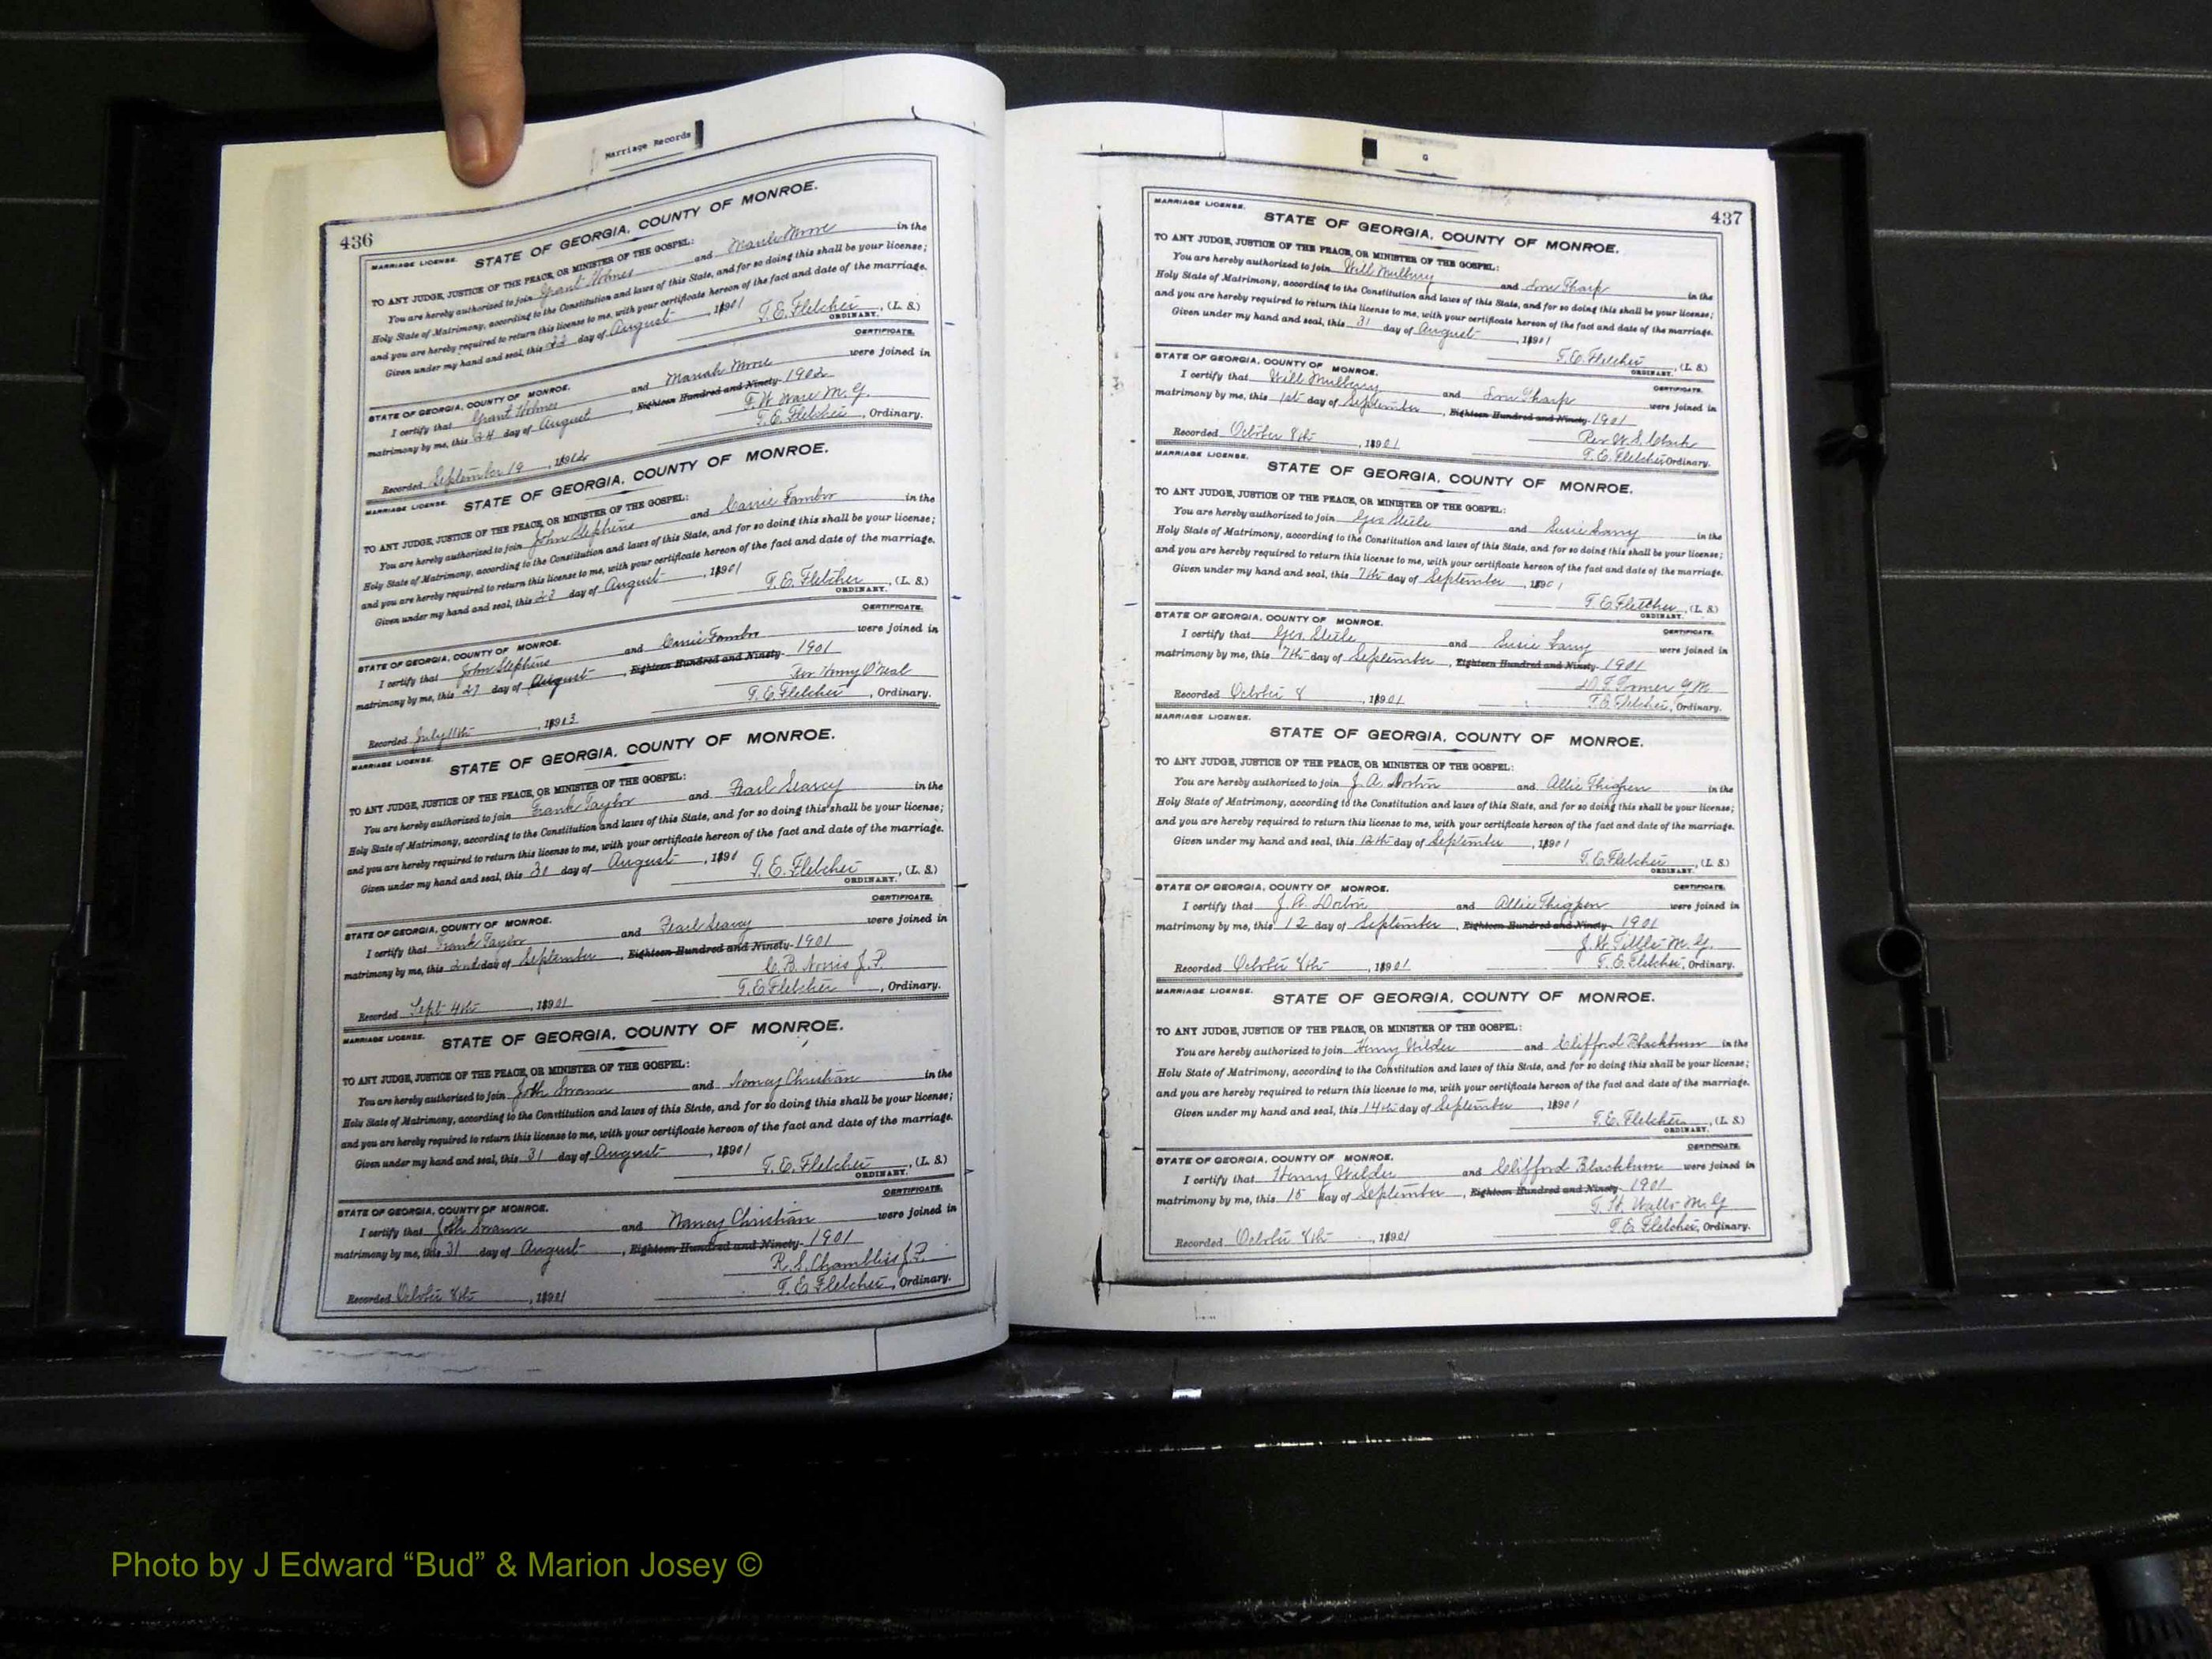 Marriage Records
436
MARRIAGE LICENSE.
STATE OF GEORGIA, COUNTY OF MONROE.
TO ANY JUDGE, JUSTICE OF THE PEACE, OR MINISTER OF THE GOSPEL:
You are hereby authorized to join Grant Holmes and Mariah Moore in the
Holy State of Matrimony, according to the Constitution and laws of this State, and for so doing this shall be your license;
and you are hereby required to return this license to me, with your certificate hereon of the fact and date of the marriage.
Given under my hand and seal, this 22 day of August, 1901
T. E. Fletcher, (L. S.)
ORDINARY.
CERTIFICATE.
STATE OF GEORGIA, COUNTY OF MONROE.
I certify that Grant Holmes and Mariah Moore were joined in
matrimony by me, this 24 day of August, Eighteen Hundred and Ninety- 1902
F. W. Ware M. G.
Recorded September 19, 1902 T. E. Fletcher, Ordinary.
MARRIAGE LICENSE.
STATE OF GEORGIA, COUNTY OF MONROE.
TO ANY JUDGE, JUSTICE OF THE PEACE, OR MINISTER OF THE GOSPEL:
You are hereby authorized to join John Stephens and Carrie Fambro in the
Holy State of Matrimony, according to the Constitution and laws of this State, and for so doing this shall be your license;
and you are hereby required to return this license to me, with your certificate hereon of the fact and date of the marriage.
Given under my hand and seal, this day of August, 1901
T. E. Fletcher, (L. S.)
ORDINARY.
CERTIFICATE.
STATE OF GEORGIA, COUNTY OF MONROE.
I certify that John Stephens and Carrie Fambro were joined in
matrimony by me, this 27 day of August, Eighteen Hundred and Ninety- 1901
Rev Henry O'Neal
Recorded July 11th, 1903 T. E. Fletcher, Ordinary.
MARRIAGE LICENSE.
STATE OF GEORGIA, COUNTY OF MONROE.
TO ANY JUDGE, JUSTICE OF THE PEACE, OR MINISTER OF THE GOSPEL:
You are hereby authorized to join Frank Taylor and Pearl Searcy in the
Holy State of Matrimony, according to the Constitution and laws of this State, and for so doing this shall be your license;
and you are hereby required to return this license to me, with your certificate hereon of the fact and date of the marriage.
Given under my hand and seal, this 31 day of August, 1901
T. E. Fletcher, (L. S.)
ORDINARY.
CERTIFICATE.
STATE OF GEORGIA, COUNTY OF MONROE.
I certify that Frank Taylor and Pearl Searcy were joined in
matrimony by me, this 2nd day of September, Eighteen Hundred and Ninety- 1901
C. B. Norris J. P.
Recorded Sept 4th, 1901 T. E. Fletcher, Ordinary.
MARRIAGE LICENSE.
STATE OF GEORGIA, COUNTY OF MONROE.
TO ANY JUDGE, JUSTICE OF THE PEACE, OR MINISTER OF THE GOSPEL:
You are hereby authorized to join Joth Swann and Nancy Christian in the
Holy State of Matrimony, according to the Constitution and laws of this State, and for so doing this shall be your license;
and you are hereby required to return this license to me, with your certificate hereon of the fact and date of the marriage.
Given under my hand and seal, this 31 day of August, 1901
T. E. Fletcher, (L. S.)
ORDINARY.
CERTIFICATE.
STATE OF GEORGIA, COUNTY OF MONROE.
I certify that Joth Swann and Nancy Christian were joined in
matrimony by me, this 31 day of August, Eighteen Hundred and Ninety- 1901
R. S. Chambliss J. P.
Recorded October 8th, 1901 T. E. Fletcher, Ordinary.
G
437
MARRIAGE LICENSE.
STATE OF GEORGIA, COUNTY OF MONROE.
TO ANY JUDGE, JUSTICE OF THE PEACE, OR MINISTER OF THE GOSPEL:
You are hereby authorized to join Will Mulbury and Lou Tharp in the
Holy State of Matrimony, according to the Constitution and laws of this State, and for so doing this shall be your license;
and you are hereby required to return this license to me, with your certificate hereon of the fact and date of the marriage.
Given under my hand and seal, this 31 day of August, 1901
T. E. Fletcher, (L. S.)
ORDINARY.
CERTIFICATE.
STATE OF GEORGIA, COUNTY OF MONROE.
I certify that Will Mulbury and Lou Tharp were joined in
matrimony by me, this 1st day of September, Eighteen Hundred and Ninety- 1901
Rev W. S. Clark
Recorded October 8th, 1901 T. E. Fletcher, Ordinary.
MARRIAGE LICENSE.
STATE OF GEORGIA, COUNTY OF MONROE.
TO ANY JUDGE, JUSTICE OF THE PEACE, OR MINISTER OF THE GOSPEL:
You are hereby authorized to join Geo Steele and Susie Lary in the
Holy State of Matrimony, according to the Constitution and laws of this State, and for so doing this shall be your license;
and you are hereby required to return this license to me, with your certificate hereon of the fact and date of the marriage.
Given under my hand and seal, this 7th day of September, 1901
T. E. Fletcher, (L. S.)
ORDINARY.
CERTIFICATE.
STATE OF GEORGIA, COUNTY OF MONROE.
I certify that Geo. Steele and Susie Lary were joined in
matrimony by me, this 7th day of September, Eighteen Hundred and Ninety- 1901
Recorded October 8, 1901 T. E. Fletcher, Ordinary.
MARRIAGE LICENSE.
STATE OF GEORGIA, COUNTY OF MONROE.
TO ANY JUDGE, JUSTICE OF THE PEACE, OR MINISTER OF THE GOSPEL:
You are hereby authorized to join J. A. and Allie Thigpen in the
Holy State of Matrimony, according to the Constitution and laws of this State, and for so doing this shall be your license;
and you are hereby required to return this license to me, with your certificate hereon of the fact and date of the marriage.
Given under my hand and seal, this 12th day of September, 1901
T. E. Fletcher, (L. S.)
ORDINARY.
CERTIFICATE.
STATE OF GEORGIA, COUNTY OF MONROE.
I certify that J. A. and Allie Thigpen were joined in
matrimony by me, this 12 day of September, Eighteen Hundred and Ninety- 1901
J. W. M. G.
Recorded October 8th, 1901 T. E. Fletcher, Ordinary.
MARRIAGE LICENSE.
STATE OF GEORGIA, COUNTY OF MONROE.
TO ANY JUDGE, JUSTICE OF THE PEACE, OR MINISTER OF THE GOSPEL:
You are hereby authorized to join Henry Wilder and Clifford Blackburn in the
Holy State of Matrimony, according to the Constitution and laws of this State, and for so doing this shall be your license;
and you are hereby required to return this license to me, with your certificate hereon of the fact and date of the marriage.
Given under my hand and seal, this 14th day of September, 1901
T. E. Fletcher, (L. S.)
ORDINARY.
CERTIFICATE.
STATE OF GEORGIA, COUNTY OF MONROE.
I certify that Henry Wilder and Clifford Blackburn were joined in
matrimony by me, this 15 day of September, Eighteen Hundred and Ninety- 1901
M. G.
Recorded October 8th, 1901 T. E. Fletcher, Ordinary.
Photo by J Edward “Bud” & Marion Josey ©